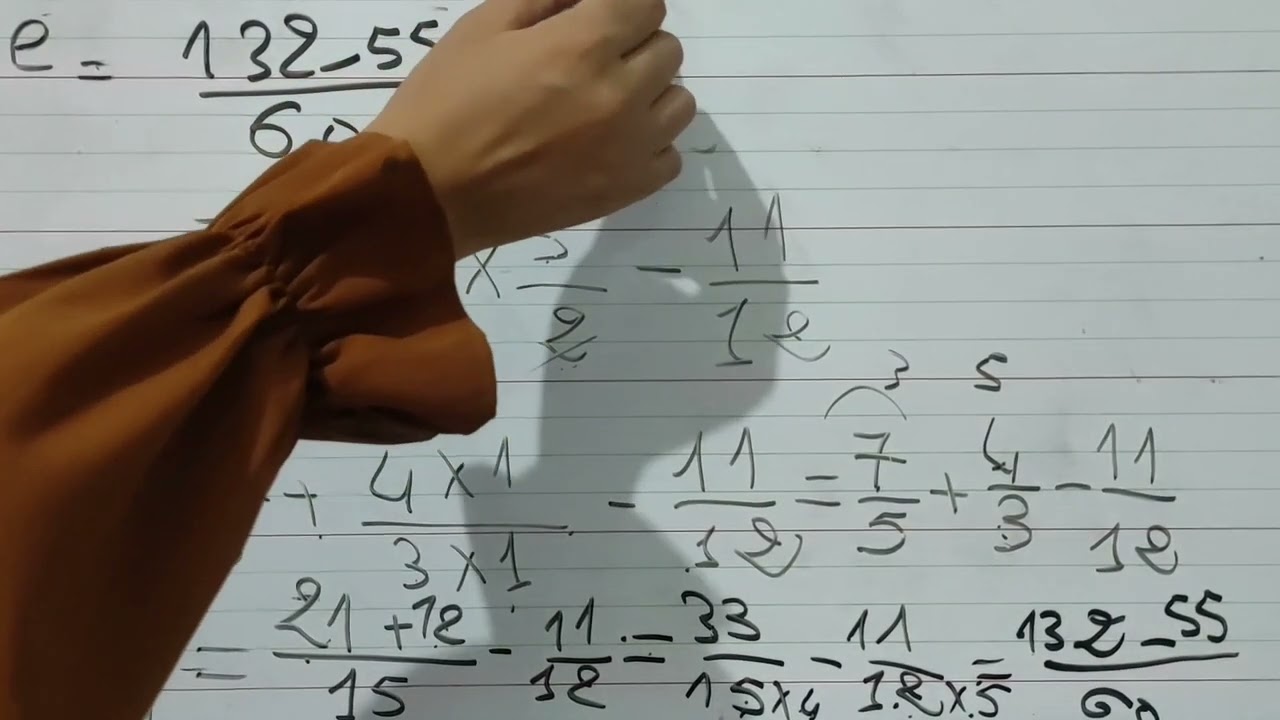 e = 132-55 / 60
× 5/2 - 11/12
3 5
+ 4×1 / 3×1 - 11/12 = 7/5 + 4/3 - 11/12
= 21+12 / 15 - 11/12 = 33 / 15×4 - 11 / 12×5 = 132-55 / 60